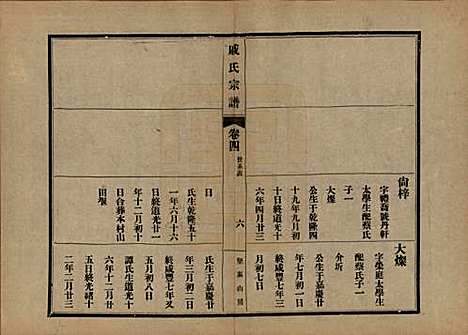 尚梓
字禮喬號丹軒
太學生配蔡氏
子一
大燦
公生于乾隆四
十九年九月初
十日終道光十
六年四月廿三
大燦
太學生
配蔡氏子一
介圻
公生于嘉慶十
年七月初一日
終咸豐七年七
月初七日
戚氏宗譜
卷四
六
日
氏生乾隆五十
一年六月十六
日終道光廿一
年十二月初十
日合葬本村山
田壩
氏生于嘉慶廿
年三月初二日
終咸豐 年又
五月初八日
譚氏生道光十
六年十二月廿
五日終光緒十
二年二月廿三